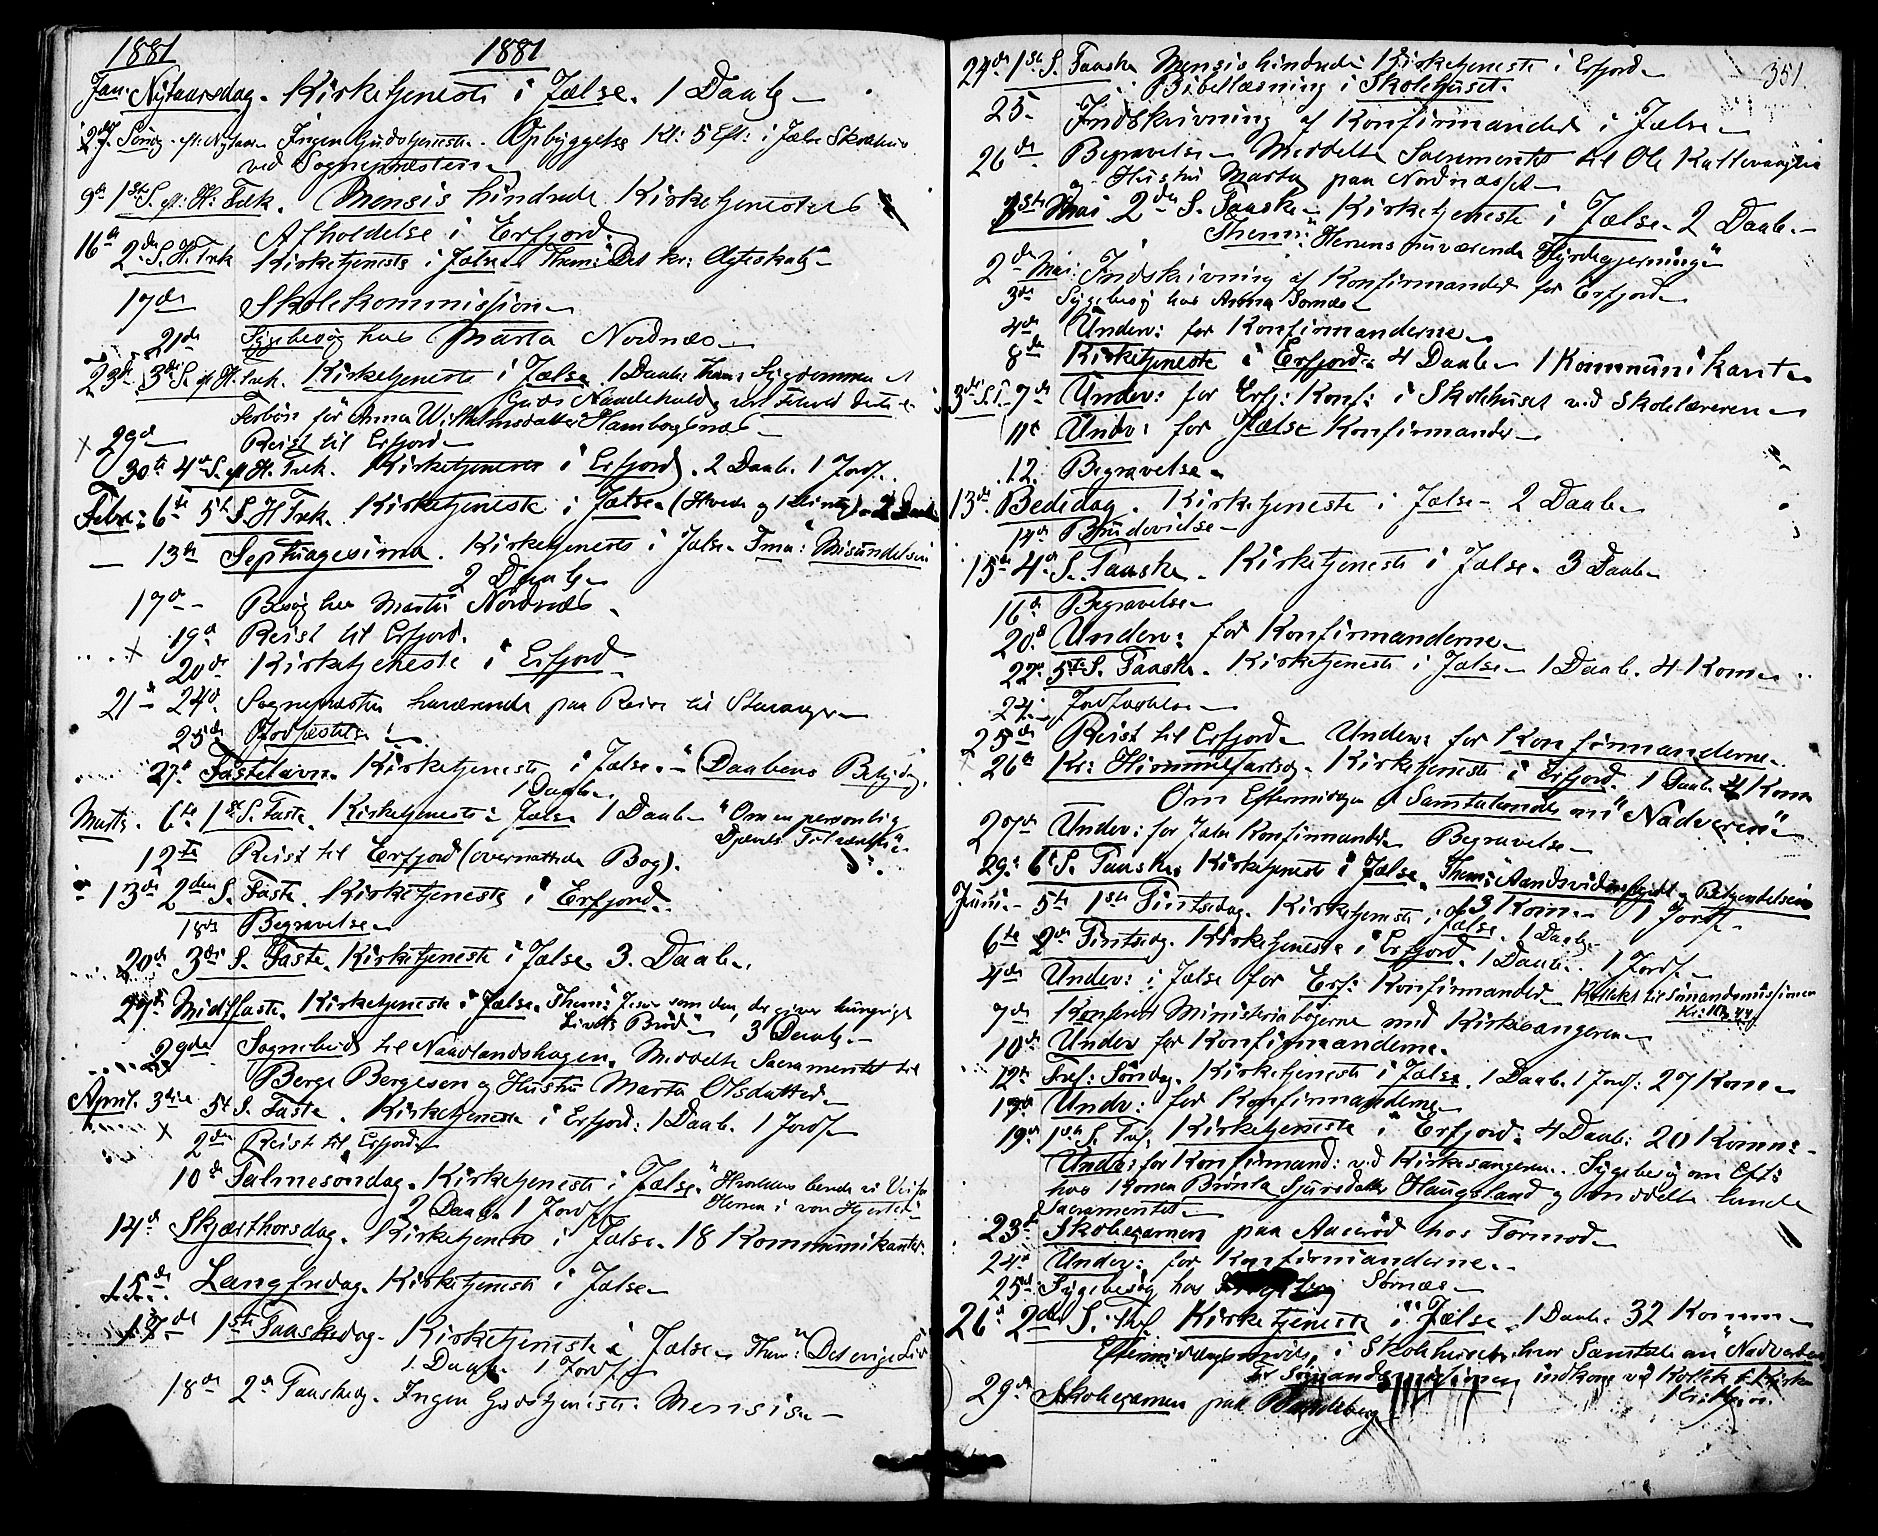 1881 1881
Jan. Nytaarsdag. Kirketjeneste i Jælse. 1 Daab
2den Sönd. eft. Nytaar Ingen Gudstjeneste. Opbyggelse Kl: 5 Eft: i Jælse Skolehus
ved Sognepræsten
9de 1ste S. ef: H: Trek. Mensis hindrede Kirketjenestens
Afholdelse i Erfjord.
16de 2den S. H. Trek Kirketjeneste i Jælse Them: Det kr: Ægteskab
17de Skolekommission
21de Sygebesøg hos Marta Nordnæs
23de 3die S. ef H. Trek. Kirketjeneste i Jælse 1 Daab: Them: Sygdommen et
Guds Naadebud
Forbön for Anna Wilhelmsdatter Hamborgsnæs
× 29de Reist til Erfjord
30te 4de S. ef H. Trek. Kirketjeneste i Erfjord. 2 Daab. 1 Jordf.
Febr: 6te 5te S. H Trek. Kirketjeneste i Jælse. (Hvede og Klinte) 2 Daab
13de Septuagesima. Kirketjeneste i Jælse Tma: Misundelsen
2 Daab
17de Besøg hos Marta Nordnæs
× 19de Reist til Erfjord.
20de Kirketjeneste i Erfjord
21de 24de Sognepræsten fraværende paa Reise til Stavanger
25de Jordfæstelse
27de Fastelavn. Kirketjeneste i Jælse. "Daabens Betydn.
1 Daab.
Marts. 6te 1ste S. Faste. Kirketjeneste i Jælse 1 Daab "Om en personlig
Djævels Tilværelse"
12te Reist til Erfjord (overnattede Bog).
13de 2den S. Faste. Kirketjeneste i Erfjord.
18de Begravelse
20de 3die S. Faste. Kirketjeneste i Jælse. 3. Daab.
27de Midtfaste. Kirketjeneste i Jælse. Them: Jesus som den, der giver hungrige
Livets Bröd" 3 Daab
29de Sognebud til Naadlandshagen. Meddelte Sacramentet til
Berge Bergesen og Hustru Marta Olsdatter
April. 3die 5te S. Faste. Kirketjeneste i Erfjord: 1 Daab. 1 Jordf.
× 2den Reist til Erfjord
10de Palmesöndag. Kirketjeneste i Jælse. "Hvorledes berede vi Veien for
Herren i vore Hjerter"
2 Daab 1 Jordf
14de Skjærthorsdag. Kirketjeneste i Jælse. 18 Kommunikanter.
15de Langfredag. Kirketjeneste i Jælse
17de 1ste Paaskedag. Kirketjeneste i Jælse Them: "Det evige Liv
1. Daab. 1 Jordf
18de 2den Paaskedg. Ingen Gudstjeneste. Mensis.
351
24de 1ste S. Paaske Mensis hindrede Kirketjeneste i Erfjord
Bibellæsning i Skolehuset.
25. Indskrivning af Konfirmander i Jælse
26de Begravelse Meddelte Sacramentet til Ole
og Hustru Marta paa Nordnæsset
1ste Mai 2den S. Paaske Kirketjeneste i Jælse. 2 Daab.
Them: Herrens nuværende Hyrdegjerning"
2den Mai: Indskrivning af Konfirmander for Erfjord
3die Sygebesøg hos Anna Sornæs
4de Underv: for Konfirmanderne
8de Kirketjeneste i Erfjord: 4 Daab 1 Kommunikant
3die S. P. 7de Underv: for Erfj: Konf: i Skolehuset ved Skolelæreren
11te Underv: for Jælse Konfirmander
12. Begravelse
13de Bededag. Kirketjeneste i Jælse 2 Daab
14de Brudevielse
15de 4de S. Paaske. Kirketjeneste i Jælse. 3 Daab
16de Begravelse
20de Underv: for Konfirmanderne
22de 5te S. Paaske. Kirketjeneste i Jælse 1 Daab. 4 Kom
24. Jordfæstelse
25de Reist til Erfjord Underv: for Konfirmanderne
26de Kr: Himmelfartsdg. Kirketjeneste i Erfjord. 1 Daab 4 Komm
Om Eftermiddagen Samtalemöde om "Nadveren"
27de Underv: for Jælse Konfirmander Begravelse
29. 6te S. Paaske. Kirketjeneste i Jælse. Them: Aandsvidnesbyrdet og Bekjendelsen
3 Kom. 1 Jordf
Juni. 5te 1ste Pintsedag. Kirketjeneste i Jælse. 1 Daab
6te 2den Pintsedg. Kirketjeneste i Erfjord. 1 Daab. 1 Jordf.
4de Underv: i Jælse for Erf: Konfirmander Kollekt til Sömandsmissionen
7de Konfererede Ministerialbøgerne med Kirkesangeren
10de Underv for Konfirmanderne.
12te Tref: Söndag. Kirketjeneste i Jælse. 1 Daab. 1 Jordf: 27 Kom
17de Underv: for Konfirmanderne
19de 1ste S. Tref. Kirketjeneste i Erfjord. 4 Daab: 20 Komm:
Underv: for Konfirmand: ved Kirkesangeren. Sygebesøg om Eft:
hos Konen Brönla Sjursdatter Haugsland og meddelte hende
Sacramentet
23de Skoleexamen paa Aarröd hos Tormod
24de Underv: for Konfirmanderne.
25de Sygebesøg hos Sörnæs
26de 2den S. Tref. Kirketjeneste i Jælse. 1 Daab 32 Komm
Eftermiddagsmöde i Skolehuset, hvor Samtale om "Nadveren
For Sömandsmissionen indkom ved Kollekt i Kirken
29de Skoleexamen paa